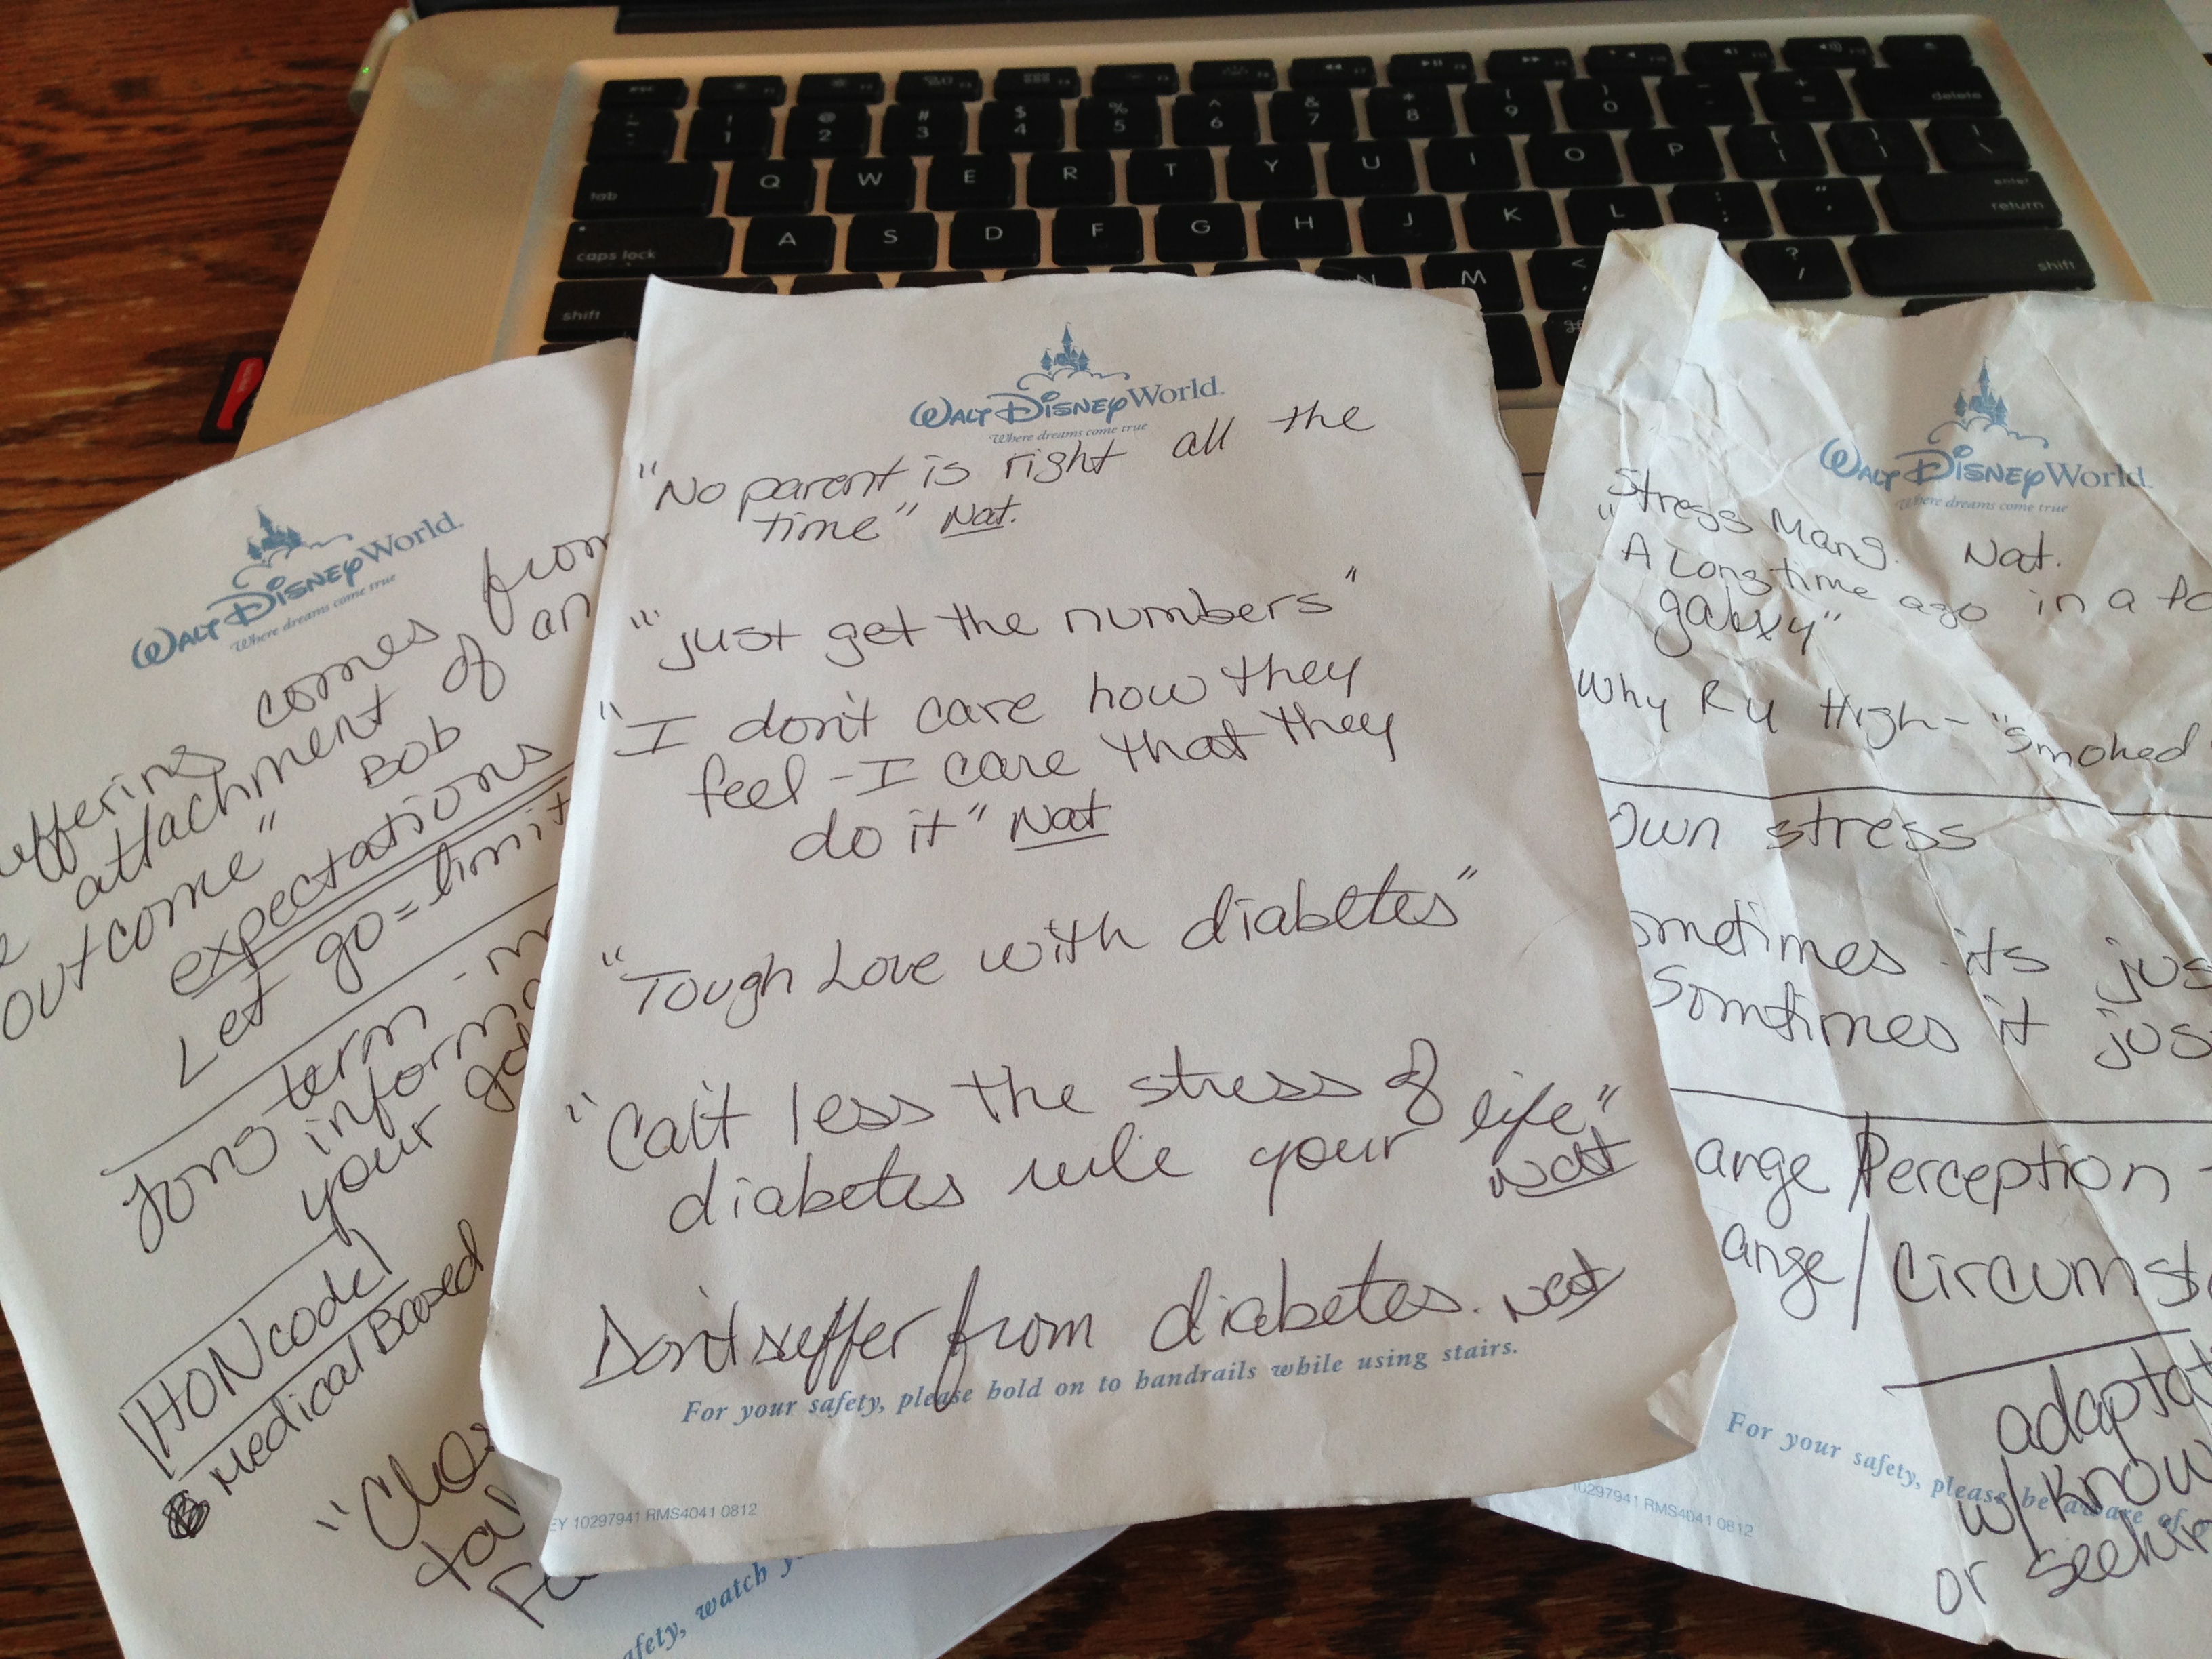 delete
tab
Q W E R T Y U I O P
caps lock
A S D F G H J K L
enter
return
shift
M
shift
Walt Disney World.
Where dreams come true
comes from
attachment of an
outcome" Bob
expectations
Let go = limit
long term
your
HONcode
Medical Based
Walt Disney World.
Where dreams come true
"No parent is right all the
time" Nat.
"just get the numbers"
"I don't care how they
feel - I care that they
do it" Nat
"Tough Love with diabetes"
"Can't less the stress of
diabetes rule your life"
Nat
Don't suffer from diabetes. Nat
For your safety, please hold on to handrails while using stairs.
10297941 RMS4041 0812
watch
Walt Disney World
Where dreams come true
Stress Mang. Nat.
"A Long time ago in a
galaxy"
Why R U High - "Smoked
own stress
its
Sometimes it
Perception
adaptat
w/ know
or
For your safety, please be aware of
10297941 RMS4041 0812